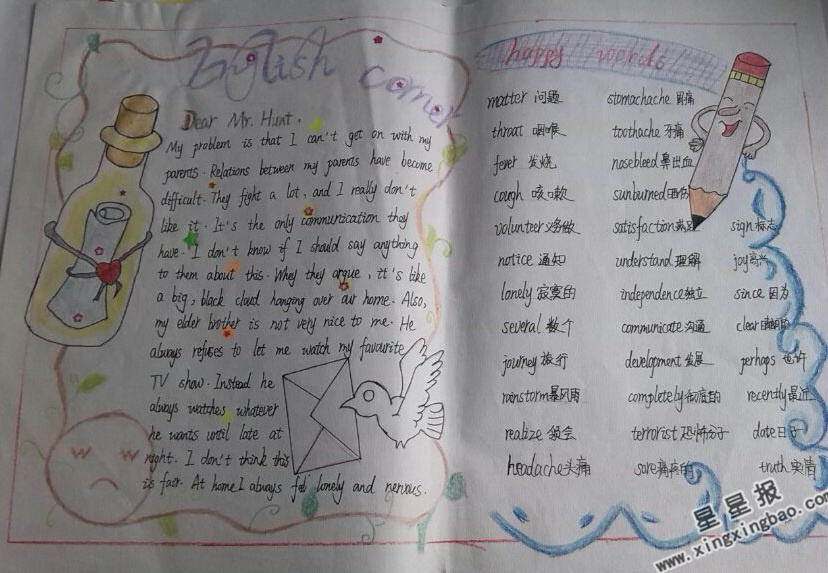 English corner
Dear Mr. Hunt,
My problem is that I can't get on with my
parents. Relations between my parents have become
difficult. They fight a lot, and I really don't
like it. It's the only communication they
have. I don't know if I should say anything
to them about this. Whey they argue, it's like
a big, black cloud hanging over our home. Also,
my elder brother is not very nice to me. He
always refuses to let me watch my favourite
TV show. Instead he
always watches whatever
he wants until late at
night. I don't think this
is fair. At home I always feel lonely and nervous.
happy words
matter 问题 stomachache 胃痛
throat 咽喉 toothache 牙痛
fever 发烧 nosebleed 鼻出血
cough 咳嗽 sunburned
volunteer 义务做 satisfaction 满足 sign 标志
notice 通知 understand 理解 joy 高兴
lonely 寂寞的 independence 独立 since 因为
several 数个 communicate 沟通 clear
journey 旅行 development 发展 perhaps 也许
rainstorm 暴风雨 completely 彻底的 recently 最近
realize 领会 terrorist 恐怖分子 date 日子
headache 头痛 sore 疼痛的 truth 实情
星星报
www.xingxingbao.com